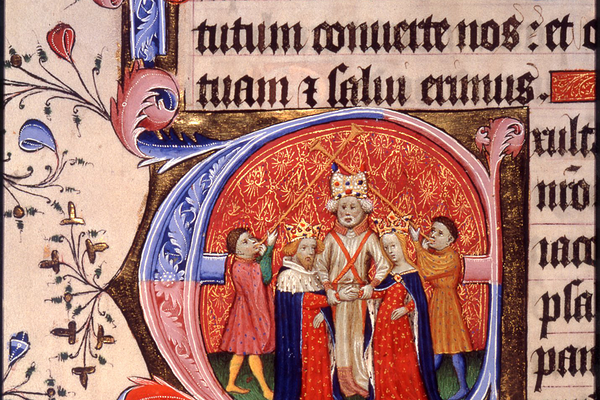 tutum conuerte nos: et o
tuam ⁊ salui erimus.
Exult
nr̄o
iaco
psa
pan